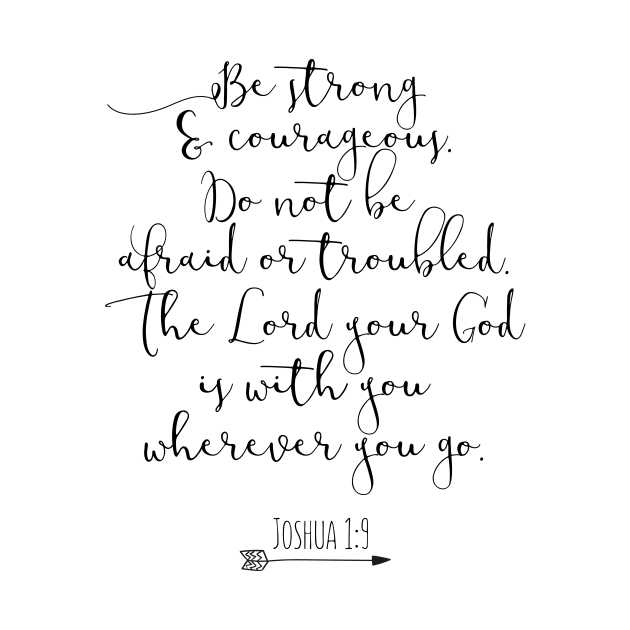 Be strong
& courageous.
Do not be
afraid or troubled.
The Lord your God
is with you
wherever you go.
JOSHUA 1:9